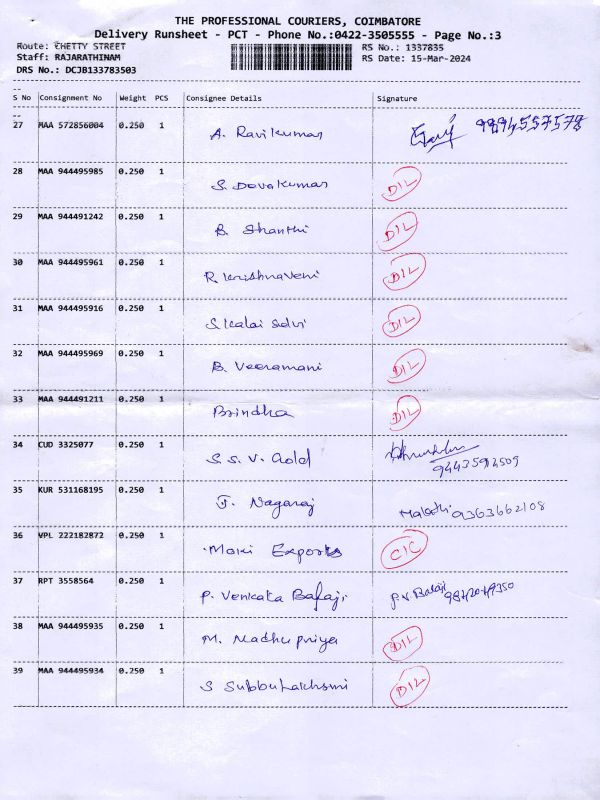 THE PROFESSIONAL COURIERS, COIMBATORE
Delivery Runsheet - PCT - Phone No.:0422-3505555 - Page No.:3
Route: CHETTY STREET
RS No.: 1337835
Staff: RAJARATHINAM
RS Date: 15-Mar-2024
DRS No.: DCJB133783503
S No Consignment No Weight PCS Consignee Details Signature
27 MAA 572856004 0.250 1 A. Ravikumar
28 MAA 944495985 0.250 1 S. Devakumar DIL
29 MAA 944491242 0.250 1 B. Shanthi DIL
30 MAA 944495961 0.250 1 R. Krishnaveni DIL
31 MAA 944495916 0.250 1 S. Kalai Selvi DIL
32 MAA 944495969 0.250 1 B. Veeramani DIL
33 MAA 944491211 0.250 1 Brindha DIL
34 CUD 3325077 0.250 1 S. S. V. Gold
35 KUR 531168195 0.250 1 J. Nagaraj Malathi 9363662108
36 VPL 222182872 0.250 1 Moni Exports CIC
37 RPT 3558564 0.250 1 P. Venkata Balaji P.V Balaji
38 MAA 944495935 0.250 1 M. Madhu priya DIL
39 MAA 944495934 0.250 1 S Subbulakhsmi DIL